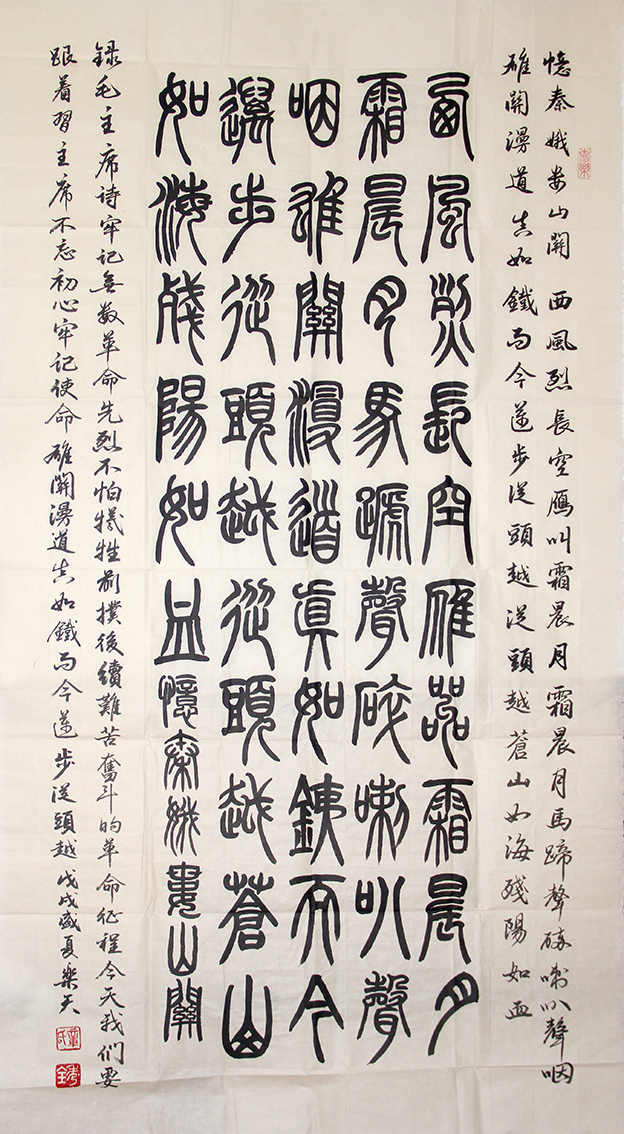 憶秦娥娄山関 西風烈長空雁叫霜晨月霜晨月馬蹄聲碎喇叭聲咽
雄関漫道真如鐵而今邁步從頭越從頭越蒼山如海殘陽如血
西風烈長空雁叫霜晨月
霜晨月馬蹏聲碎喇叭聲
咽雄關漫道真如鐵而今
邁步從頭越從頭越蒼山
如海殘陽如血憶秦娥婁山關
録毛主席诗牢記無数革命先烈不怕犧牲前撲後續難苦奮斗的革命征程今天我们要
跟着習主席不忘初心牢記使命雄関漫道真如鐵而今邁步從頭越戊戌盛夏樂天